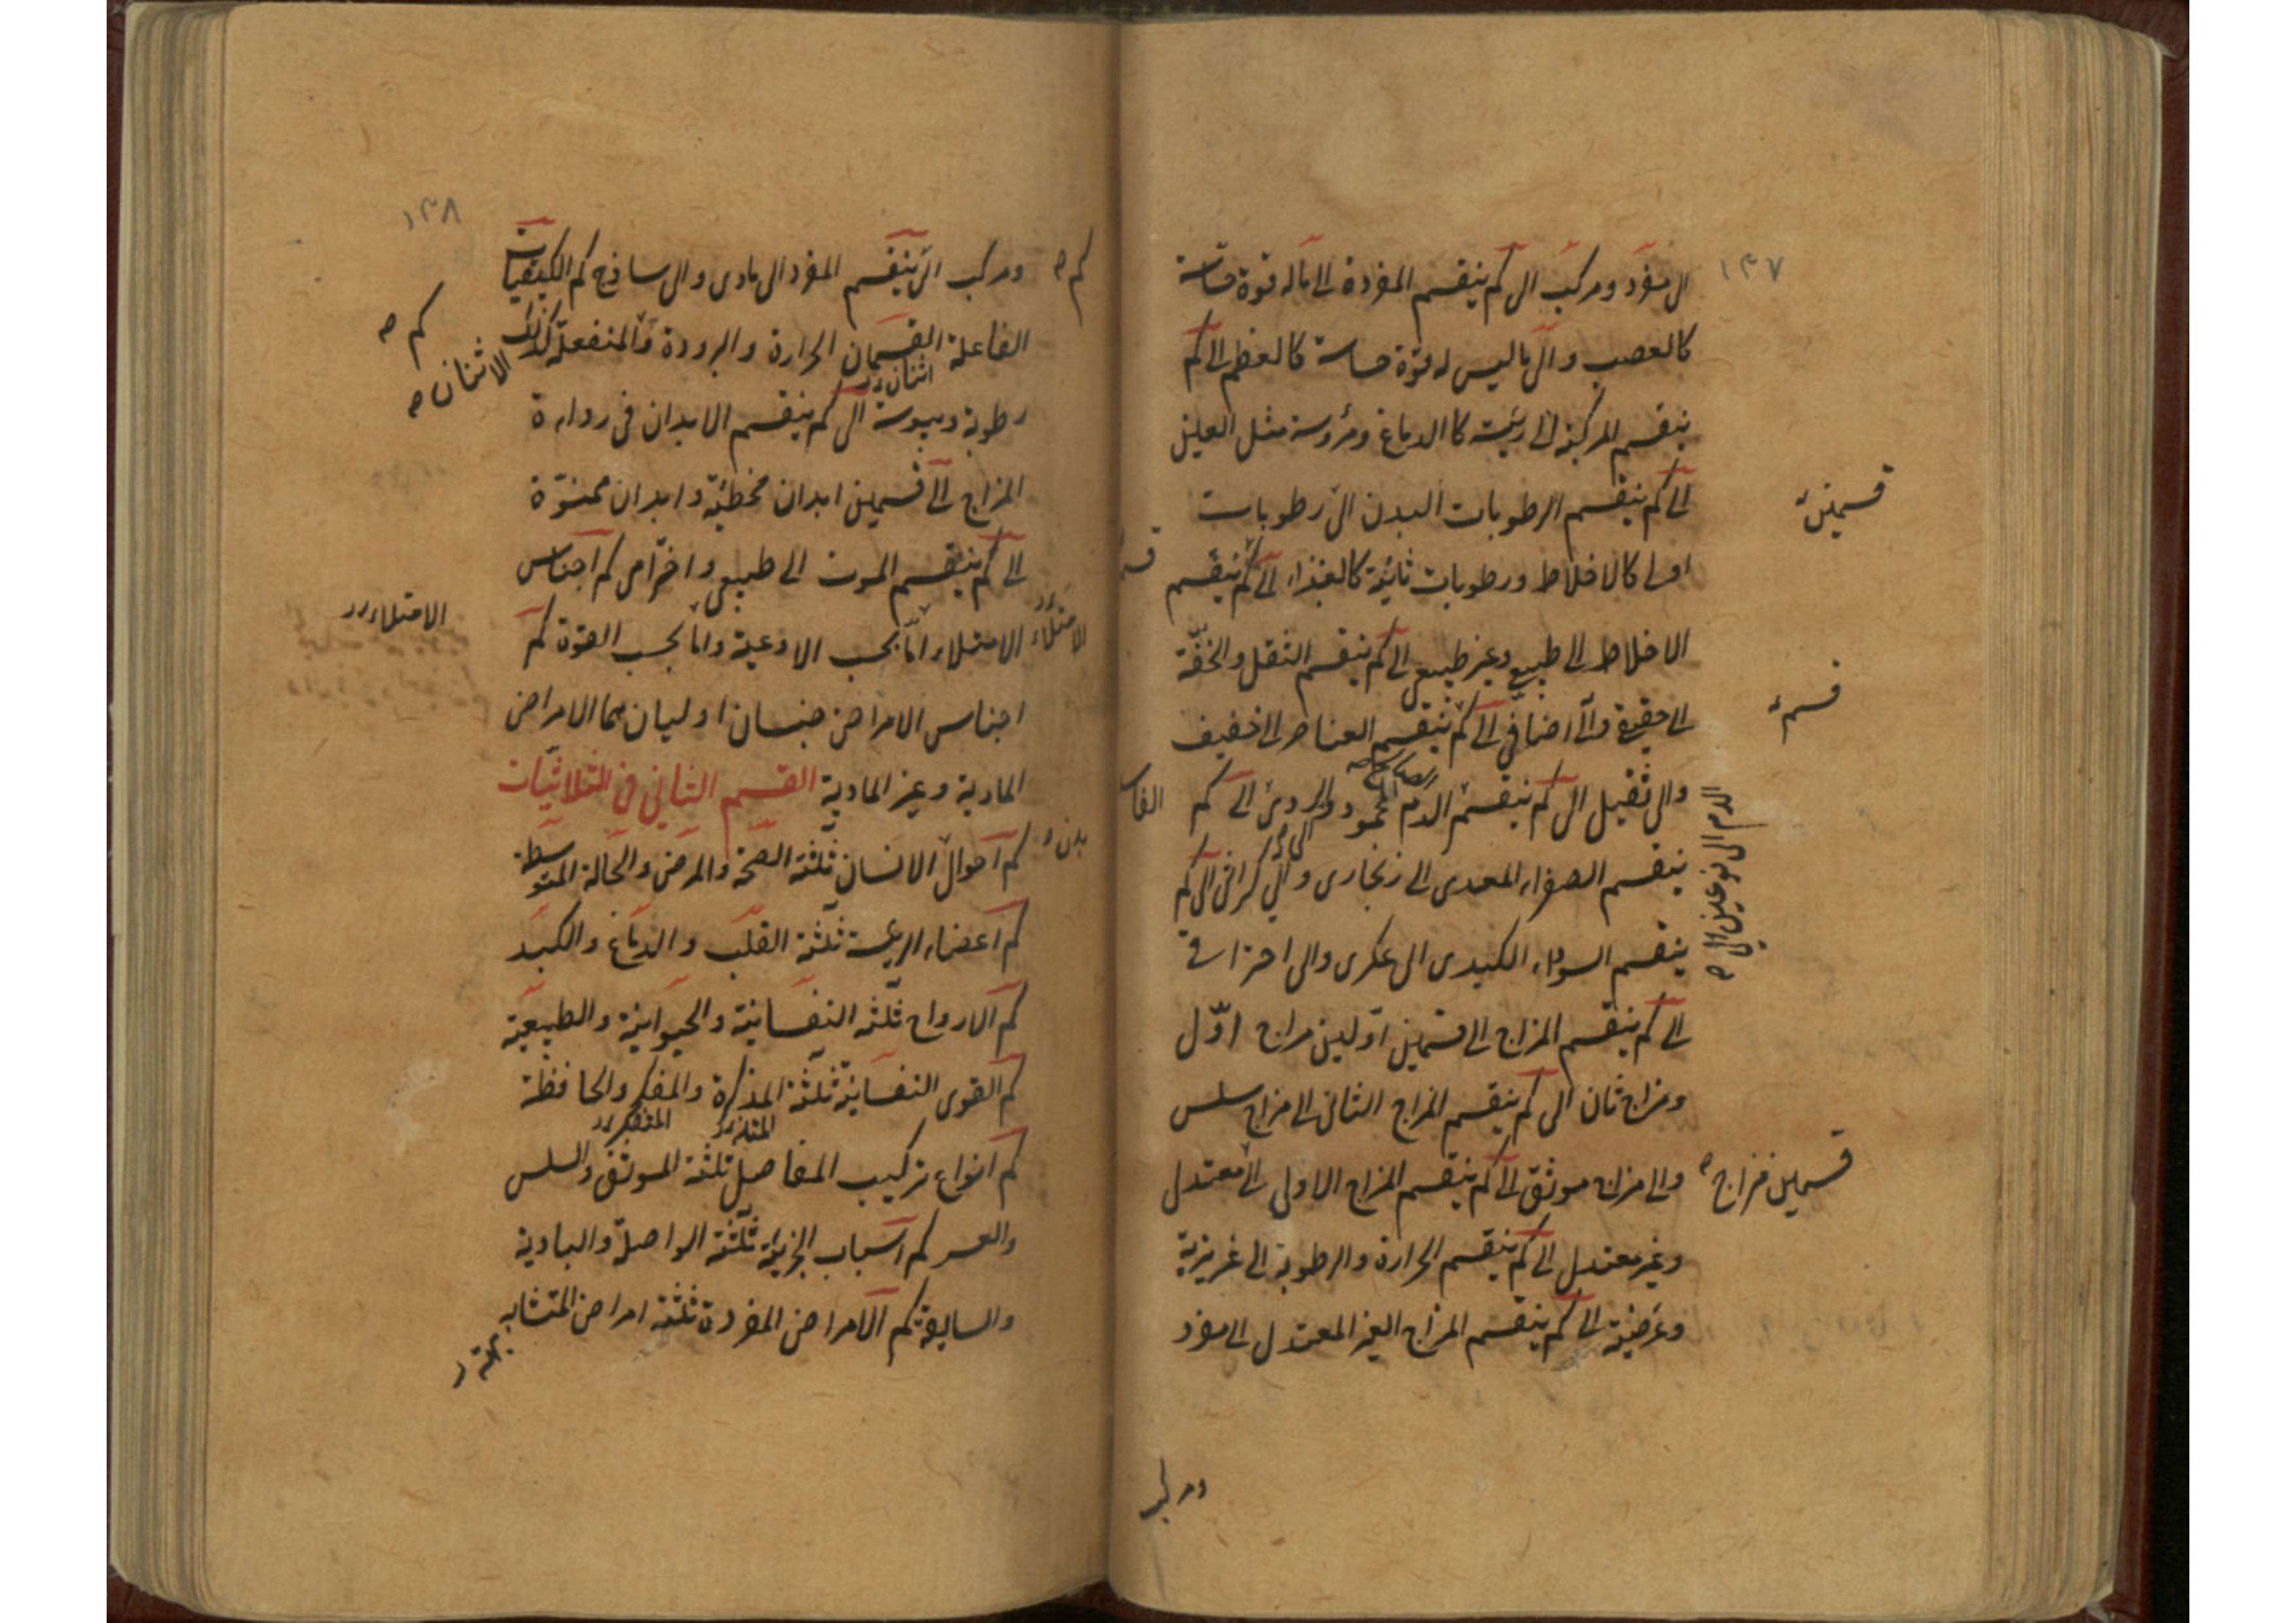 ١٣٧
الى مفرد ومركب الى كم ينقسم المفردة الى ماله قوة حاسة
كالعصب والى ماليس له قوة حاسة كالعظم الى كم
ينقسم المركبة الى رئيسة كالدماغ ومرؤسة مثل العين
الى كم ينقسم الرطوبات البدن الى رطوبات
قسمين
اولى كالاخلاط ورطوبات ثانية كالغذاء الى كم ينقسم
الاخلاط الى طبيعى وغير طبيعى الى كم ينقسم الثقل والخفة
الى حقيقى والى اضافى الى كم ينقسم العناصر الى خفيف
قسم
والى ثقيل الى كم ينقسم الدم المحمود والردى الى كم
الدم الى نوعين الى
ينقسم الصفراء المعدى الى زنجارى والى كراثى الى كم
ينقسم السوداء الكبدى الى عكرى والى احتراقى
الى كم ينقسم المزاج الى قسمين اولين مزاج اوّل
ومزاج ثان الى كم ينقسم المزاج الثانى الى مزاج سلس
والى مزاج موثق الى كم ينقسم المزاج الاولى الى معتدل
قسمين فمزاج
وغير معتدل الى كم ينقسم الحرارة والرطوبة الى غريزية
وعرضية الى كم ينقسم المزاج الغير المعتدل الى مفرد
ومركب
١٣٨
ومركب الى ينقسم المفرد الى مادى والى ساذج كم الكيفيات
كم
الفاعلة القسمان الحرارة والبرودة والمنفعلة كذلك
اثنان
كم
الاثنان
رطوبة ويبوسة الى كم ينقسم الابدان فى رداءة
المزاج الى قسمين ابدان مخطئة وابدان ممنوّة
الى كم ينقسم الموت الى طبيعى واخترامى كم اجناس
الامتلاء اما بحسب الاوعية واما بحسب القوة كم
الامتلاء
الامتلاء
اجناس الامراض جنسان اوليان هما الامراض
المادية وغير المادية القسم الثانى فى الثلاثيات
كم احوال الانسان ثلثة الصحة والمرض والحالة المتوسطة
بدن
كم اعضاء الريسة ثلثة القلب والدماغ والكبد
كم الارواح ثلثه النفسانية والحيوانية والطبيعية
كم القوى النفسانية ثلثة المذكرة والمفكر والحافظة
كم انواع تركيب المفاصل ثلثة الموثق والسلس
والعسر كم اسباب الجزئية ثلثة الواصلة والبادية
والسابقة كم الامراض المفردة ثلثة امراض المتشابه